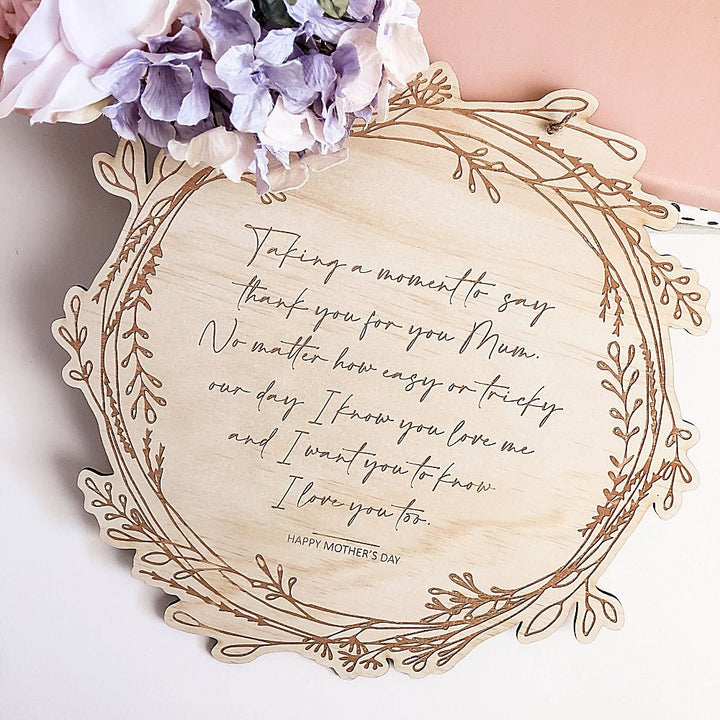 Taking a moment to say
thank you for you Mum.
No matter how easy or tricky
our day I know you love me
and I want you to know
I love you too.
HAPPY MOTHER'S DAY